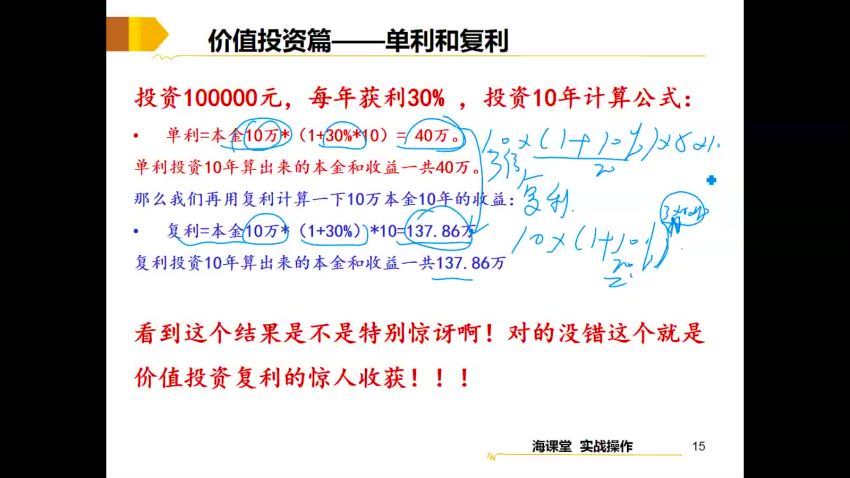 价值投资篇——单利和复利
投资100000元，每年获利30% ，投资10年计算公式：
• 单利=本金10万*（1+30%*10）= 40万。
单利投资10年算出来的本金和收益一共40万。
那么我们再用复利计算一下10万本金10年的收益：
• 复利=本金10万*（1+30%）*10=137.86万
复利投资10年算出来的本金和收益一共137.86万
3倍
复利
10×(1+10%)
20
看到这个结果是不是特别惊讶啊！对的没错这个就是
价值投资复利的惊人收获！！！
海课堂 实战操作
15